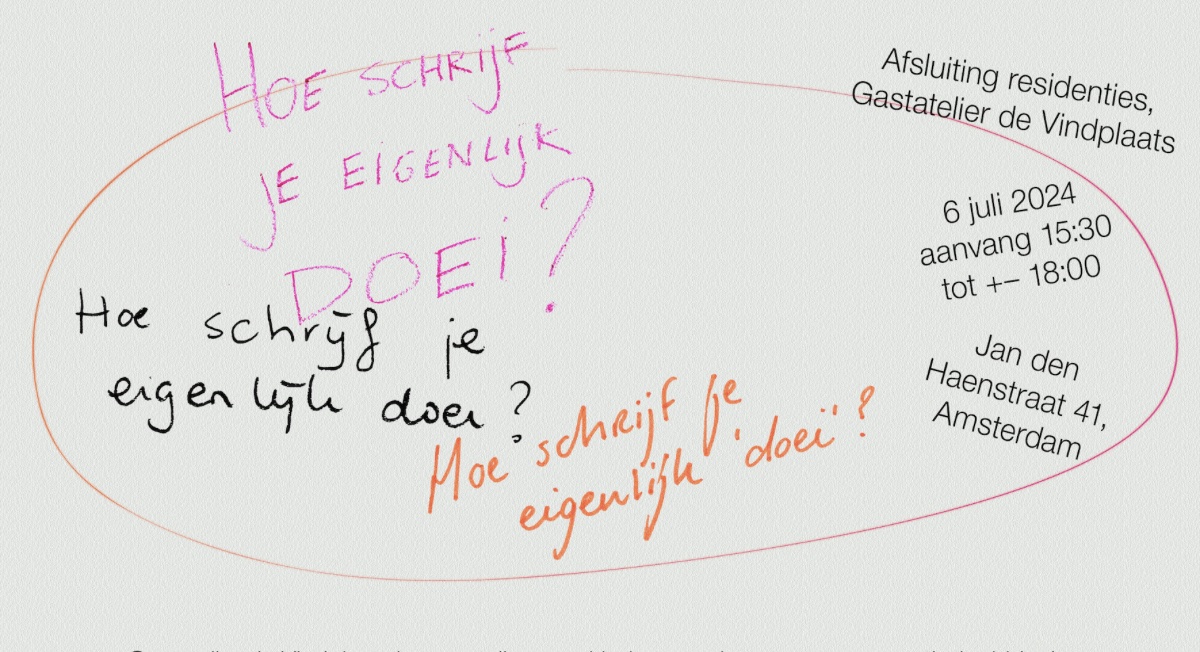 HOE SCHRIJF
JE EIGENLIJK
DOEI?
Hoe schrijf je
eigenlijk doei?
Hoe schrijf je
eigenlijk 'doei'?
Afsluiting residenties,
Gastatelier de Vindplaats
6 juli 2024
aanvang 15:30
tot +– 18:00
Jan den
Haenstraat 41,
Amsterdam